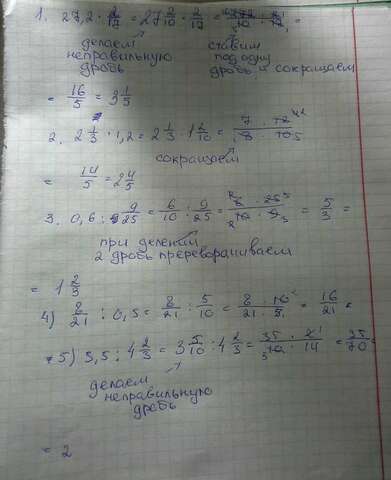 1. 27,2 · 2/17 = 27 2/10 · 2/17 =
делаем неправильную дробь
ставим под одну дробь и сокращаем
= 16/5 = 3 1/5
2. 2 1/3 · 1,2 = 2 1/3 · 1 2/10 = 7 · 12 / 3 · 10
сокращаем
= 14/5 = 2 4/5
3. 0,6 : 9/25 = 6/10 : 9/25 = 6 · 25 / 10 · 9 = 5/3 =
при делении 2 дробь препереворашиваем
= 1 2/3
4) 8/21 : 0,5 = 8/21 : 5/10 = 8 · 10 / 21 · 5 = 16/21
5) 3,5 : 4 2/3 = 3 5/10 · 4 2/3 = 35/10 ·
делаем неправильную дробь
= 2